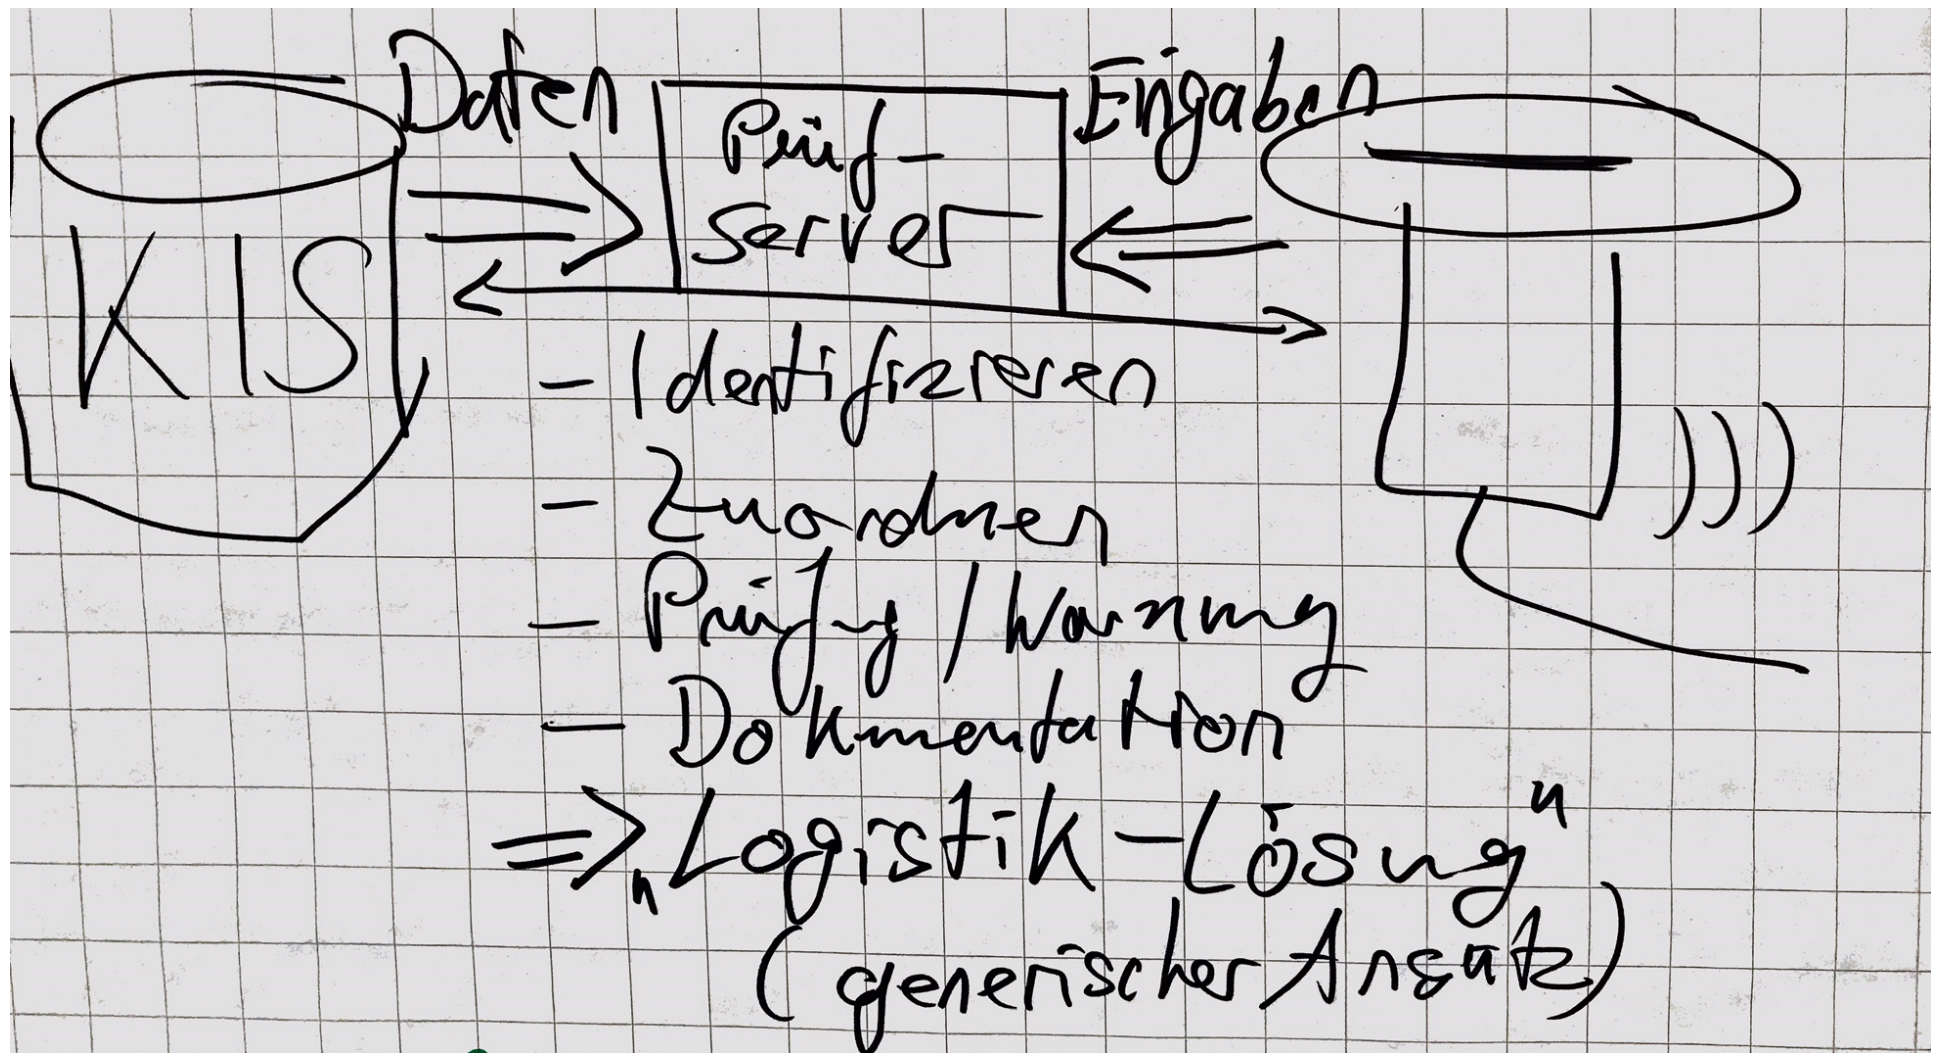 Daten
Prüf-
server
Eingaben
KIS
- Identifizieren
- Zuordnen
- Prüfung / Warnung
- Dokumentation
=> "Logistik-Lösung"
(generischer Ansatz)